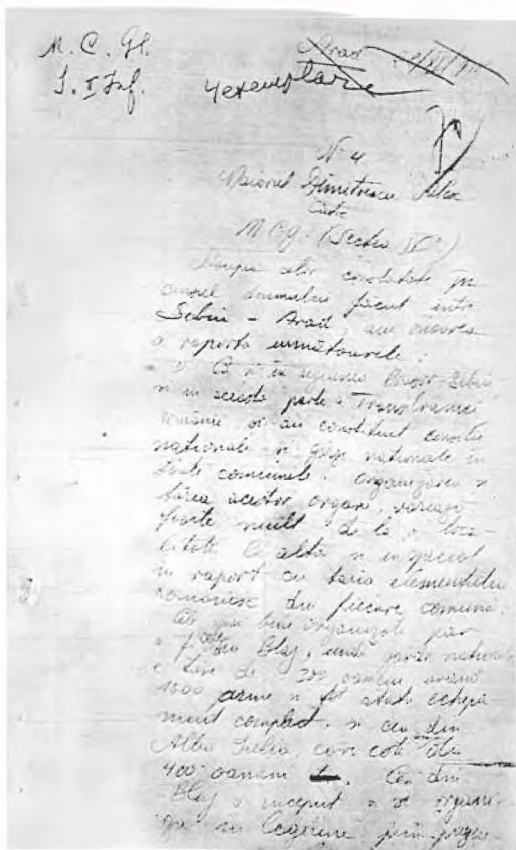 M. C. Gl.
S. I Inf.
Arad
4 exemplare
Nº 4
Maiorul Dimitrescu
Către
M.C.G. (Secția II)
Asupra celor constatate în
cursul drumului făcut între
Sebiu - Arad, am onoarea
a raporta următoarele:
Că și în regiunea Brașov-Sebiu
și în această parte a Transilvaniei
române s'au constituit consilii
naționale și gărzi naționale în
toate comunele. Organizarea și
tăria acestor organe, variază
foarte mult de la o loca-
litate la alta și în special
în raport cu tăria elementului
românesc din fiecare comună.
Cele mai bine organizate par
a fi cele din Blaj, unde garda națională
e tare de 300 oameni având
1500 arme și tot atâta echipa-
ment complect, și cea din
Alba Iulia, cam cota de
400 oameni. Cea din
Blaj a început a se organi-
za în legiune prin